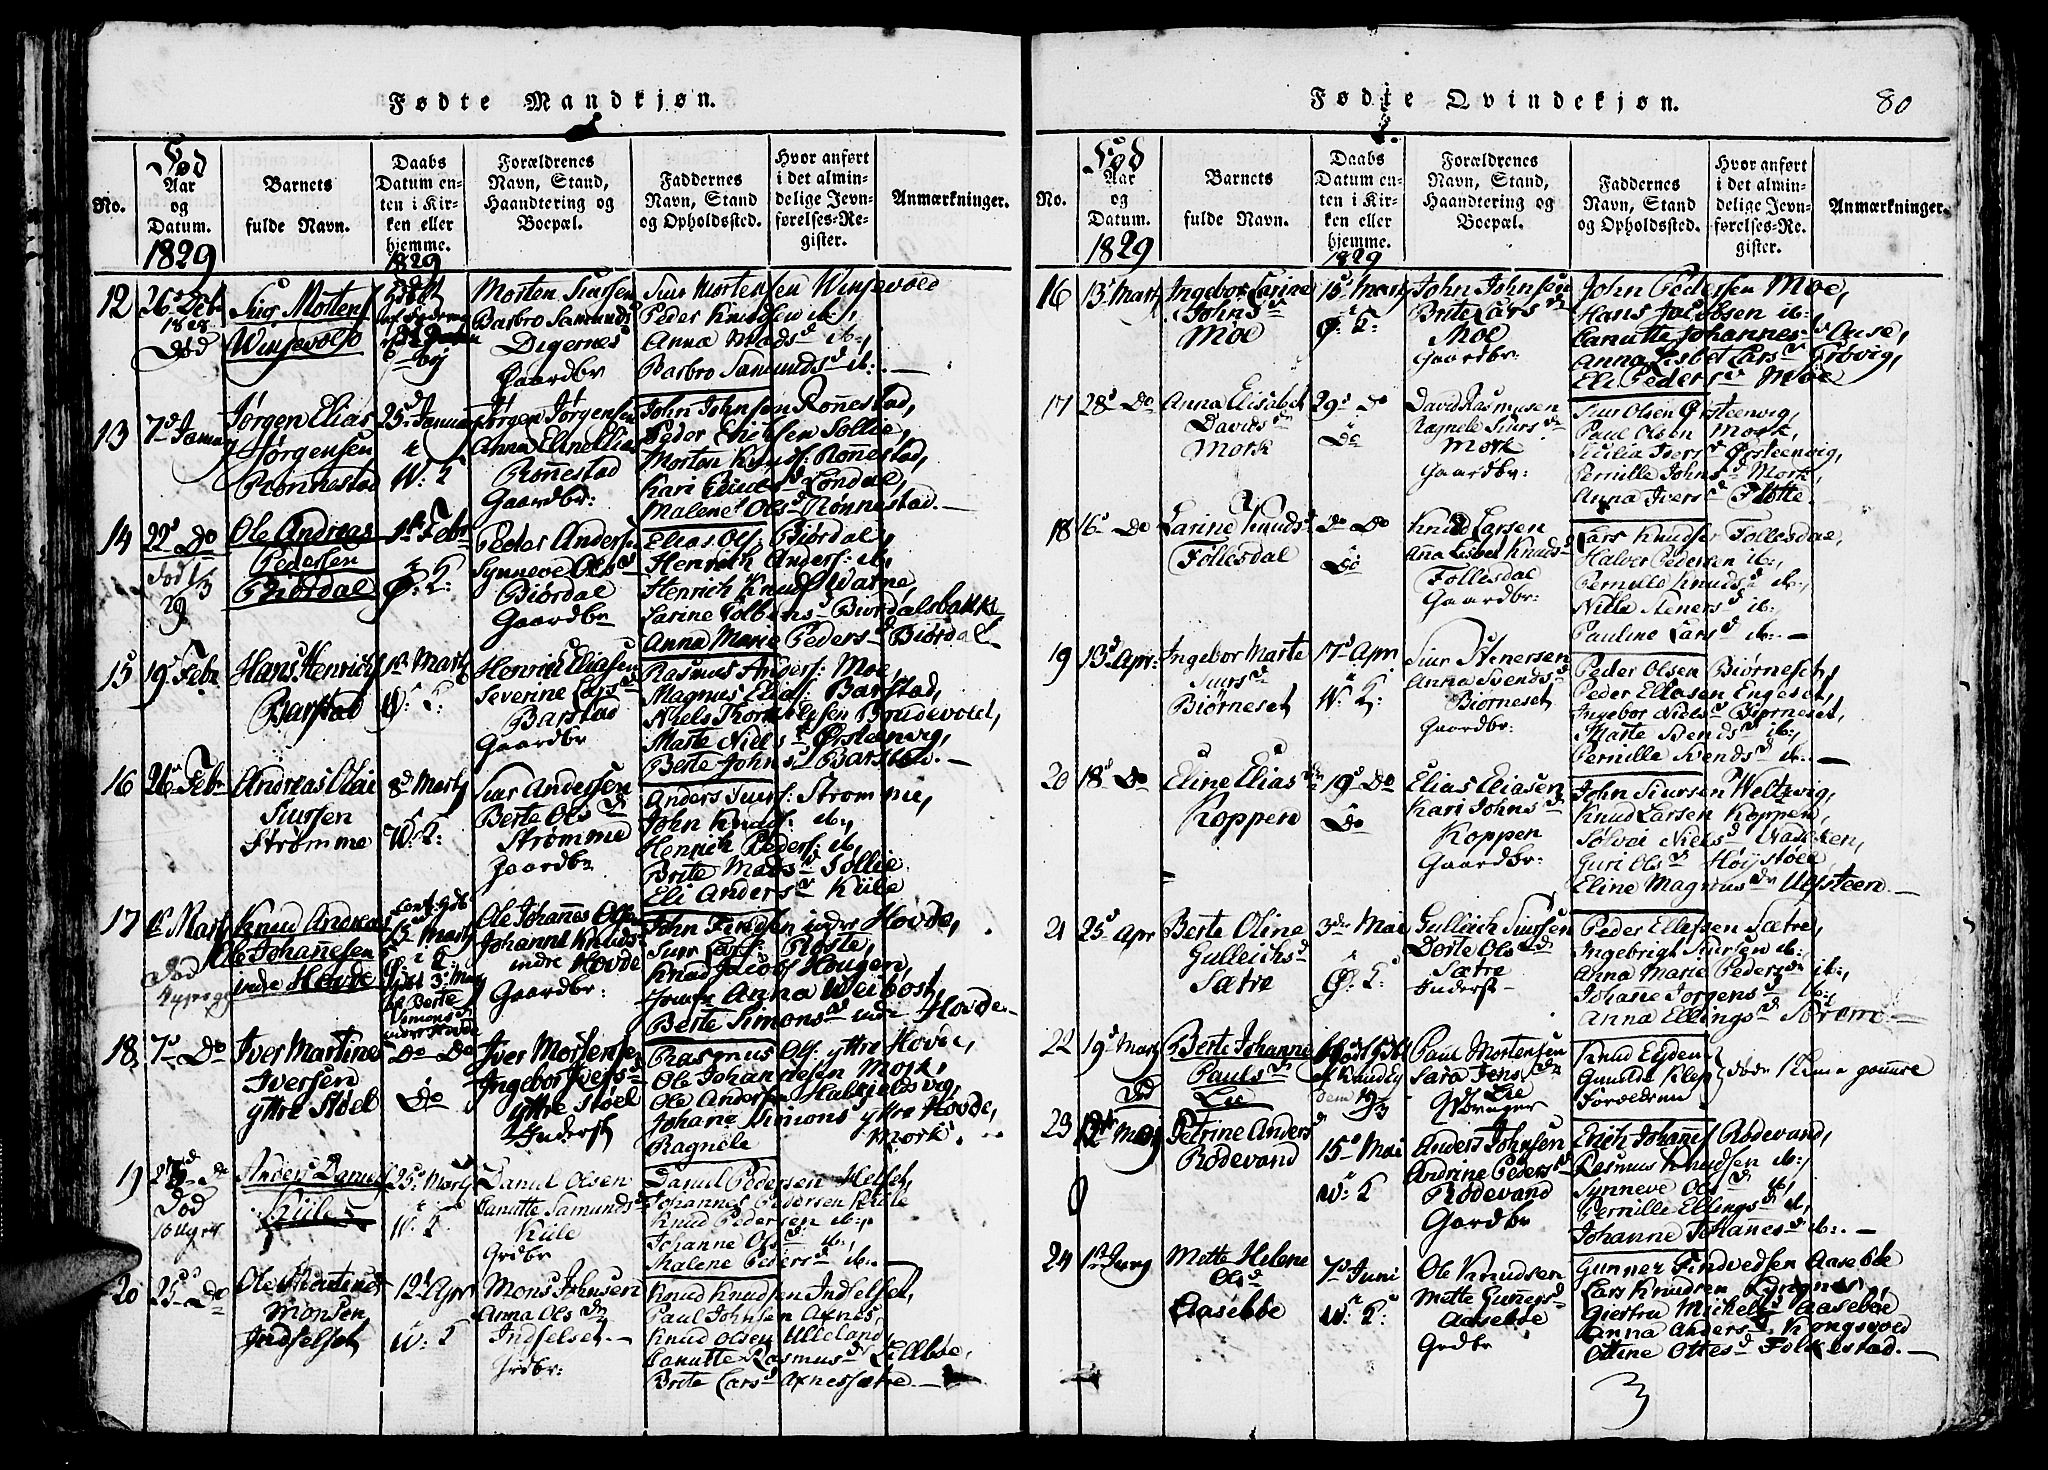 Fødte Mandkjøn.
No.
Fød
Aar
og
Datum.
1829
Barnets
fulde Navn.
Daabs
Datum en-
ten i Kir-
ken eller
hjemme.
1829
Forældrenes
Navn, Stand,
Haandtering og
Boepæl.
Faddernes
Navn, Stand
og Opholdssted.
Hvor anført
i det almin-
delige Jevn-
førelses-Re-
gister.
Anmærkninger.
12
26 Debr
1828
Død
Siur Mortens
Winjevold
Morten Siursen
Barbro Samunds d
Digernes
Gaardbr
Siur Mortensen Winjevold
Peder Knudsen ib:,
Anna Mads d ib:,
Barbro Samunds d ib:. —
13
7 d Januar
Jørgen Elias
Jørgensen
Rønnestad
25 d Januar
i
W: K
Jørgen Jørgensen
Rønnestad
Gaardbr:
John Johnsen Rønnestad,
Peder Sollie,
Morten Knuds: Rønnestad,
Kari
Malene Ols d Rønnestad. —
14
22 d Do
Død 1/3
29
Ole Andreas
Pedersen
Biørdal
1st Febr
i
Ø: K:
Peder Anders
Synneve Ols d
Biørdal
Gaardbr
Elias Ols: Biørdal,
Henrich Anders: ib,
Henrich Knuds Watne,
Larine Biørdalsbakk
Anna Marie Peders d Biørdal
15
19 Febr
Hans Henrichs
Barstad
1st Marts
Ø: K:
Henrich Eliasen
Severine Lars d
Barstad
Gaardbr
Rasmus Anders: Moe,
Magnus Elias: Barstad,
Niels Brudevold,
Marte Niels d Ørsteenvig,
Berte Johns d Barstad. —
16
26 Febr
Andreas Olai
Siursen
Strømme
8 d Marts
i
W: K:
Siur Andersen
Berte Ols d
Strømme
Gaardbr
Anders Siurs: Strømme,
John Knuds: ib:,
Henrich Peders: ib,
Brite Mads d Sollie
Eli Anders d Kiile
17
1st Marts
Død
Knud Andreas
Ole Johannesen
indre Hovde
Ole Johannes Olsen
Johanne Knuds
indre Hovde
Gaardbr:
John indre Hovde,
Siur Lars: Røste,
Knud Jacobs Hougen,
Jomfr Anna Weibost,
Berte Simons d indre Hovde —
18
7 d Do
Iver Martine
Iversen
yttre Støel
Do Do
Do
Iver Mortensen
Ingebor Ivers d
yttre Støel
Inderst
Rasmus Ols yttre Hovde,
Ole Johannesen Mork,
Ole Andersen Halkjelsvig,
Johane Simons yttre Hovde,
Ragnele Mork. —
19
Død
Anders Daniels
Kiile
25 d Marts
i
W: K
Daniel Olsen
Canutte Samunds d
Kiile
Grdbr
Daniel Pedersen Helset,
Johannes Pedersen Kiile
Knud Pedersen ib:,
Johanne Ols d ib:,
Malene Peders d ib:. —
20
25 d Do
Ole Martinus
Monsen
Indselset
12 d Apr
i
W: K
Mons Johnsen
Anna Ols d
Indselset. —
Grdbr:
Knud Knudsen Indselset,
Paul Johnsen Axnes,
Knud Olsen Ulleland,
Canutte Rasmus d Lillebøe,
Brite Lars d Axnessætre —
Fødte Qvindekjøn.
80
No.
Fød
Aar
og
Datum.
1829
Barnets
fulde Navn.
Daabs
Datum en-
ten i Kir-
ken eller
hjemme.
1829
Forældrenes
Navn, Stand,
Haandtering og
Boepæl.
Faddernes
Navn, Stand
og Opholdssted.
Hvor anført
i det almin-
delige Jevn-
førelses-Re-
gister.
Anmærkninger.
16
13 d Marts
Ingebor Larine
Johns d
Moe
15 d Marts
i
Ø: K:
John Johnsen
Brite Lars d
Moe
Gaardbr:
John Pedersen Moe,
Hans Jacobsen ib:
Canutte Johannes d Aase,
Anna Lisbet Lars d
Eli Peders d Moe
17
28 d Do
Anna Elisabet
Davids d
Mork
29 d Do
Do
David Rasmusen
Ragnele Siurs d
Mork
Gaardbr:
Siur Olsen Ørsteenvig,
Paul Olsen Mork,
Sicilia Ivers d Ørsteenvig,
Pernille Johns d Mork,
Anna Ivers d Flotte. —
18
16 d Do
Larine Knuds d
Follesdal
Do Do
Do
Knud Larsen
Anna Lisbet Knuds d
Follesdal
Gaardbr:
Lars Knudsen Follesdal,
Halver Pedersen ib:,
Pernille Knuds d ib:,
Nille Steners d ib:,
Pauline Lars d ib:. —
19
13 d Apr:
Ingebor Marte
Siurs d
Biørneset
17 d Apr
i
W: K:
Siur Stenersen
Anna Svends d
Biørneset
Gaardbr:
Peder Olsen Biørneset,
Peder Eliasen Engeset,
Ingebor Niels d Biørneset,
Marte Svends d ib:,
Pernille Svends d ib:. —
20
18 d Do
Eline Elias d
Koppen
19 d Do
Do
Elias Eliasen
Kari Johns d
Koppen
Gaardbr:
John Siursen Weltzvig,
Knud Larsen Koppen,
Sølvei Niels d Nakken,
Guri Ols d Høystøel,
Eline Magnus d Ulfsteen. —
21
25 d Apr
Berte Oline
Gulleichs d
Sætre
3 die Mai
i
Ø: K:
Gulleich Siursen
Dorte Ols d
Sætre
Inderst —
Peder Ellefsen Sætre,
Ingebrigt Siursen ib:
Anna Marie Peders d ib:,
Johanne Jørgens d ib:,
Anna Ellings d Strøm. —
22
19 d Marts
Død
Berte Johanne
Pauls d
Lie
Paul Mortensen
Sara Jens d
Lie
Knud Eyden
Forældrene
23
12te Mai
Petrine Anders d
Rødevand
15 d Mai
i
W: K
Anders Johnsen
Andrine Peders d
Rødevand
Gaardbr
Erich Johannes Rødevand,
Rasmus Knudsen ib:,
Synneve Ols d ib,
Pernille Ellings d ib,
Johanne Johanes d ib:. —
24
Mette Helene
Ols d
Aasebøe
7 d Juni
i
W: K:
Ole Knudsen
Mette Gunners d
Aasebøe
Grdbr
Gunner Findvedsen Aasebøe
Lars Knudsen
Giertru Michels d Aasebøe
Anna Anders d Kongsvold
Ottine Ottes d Folkestad. —